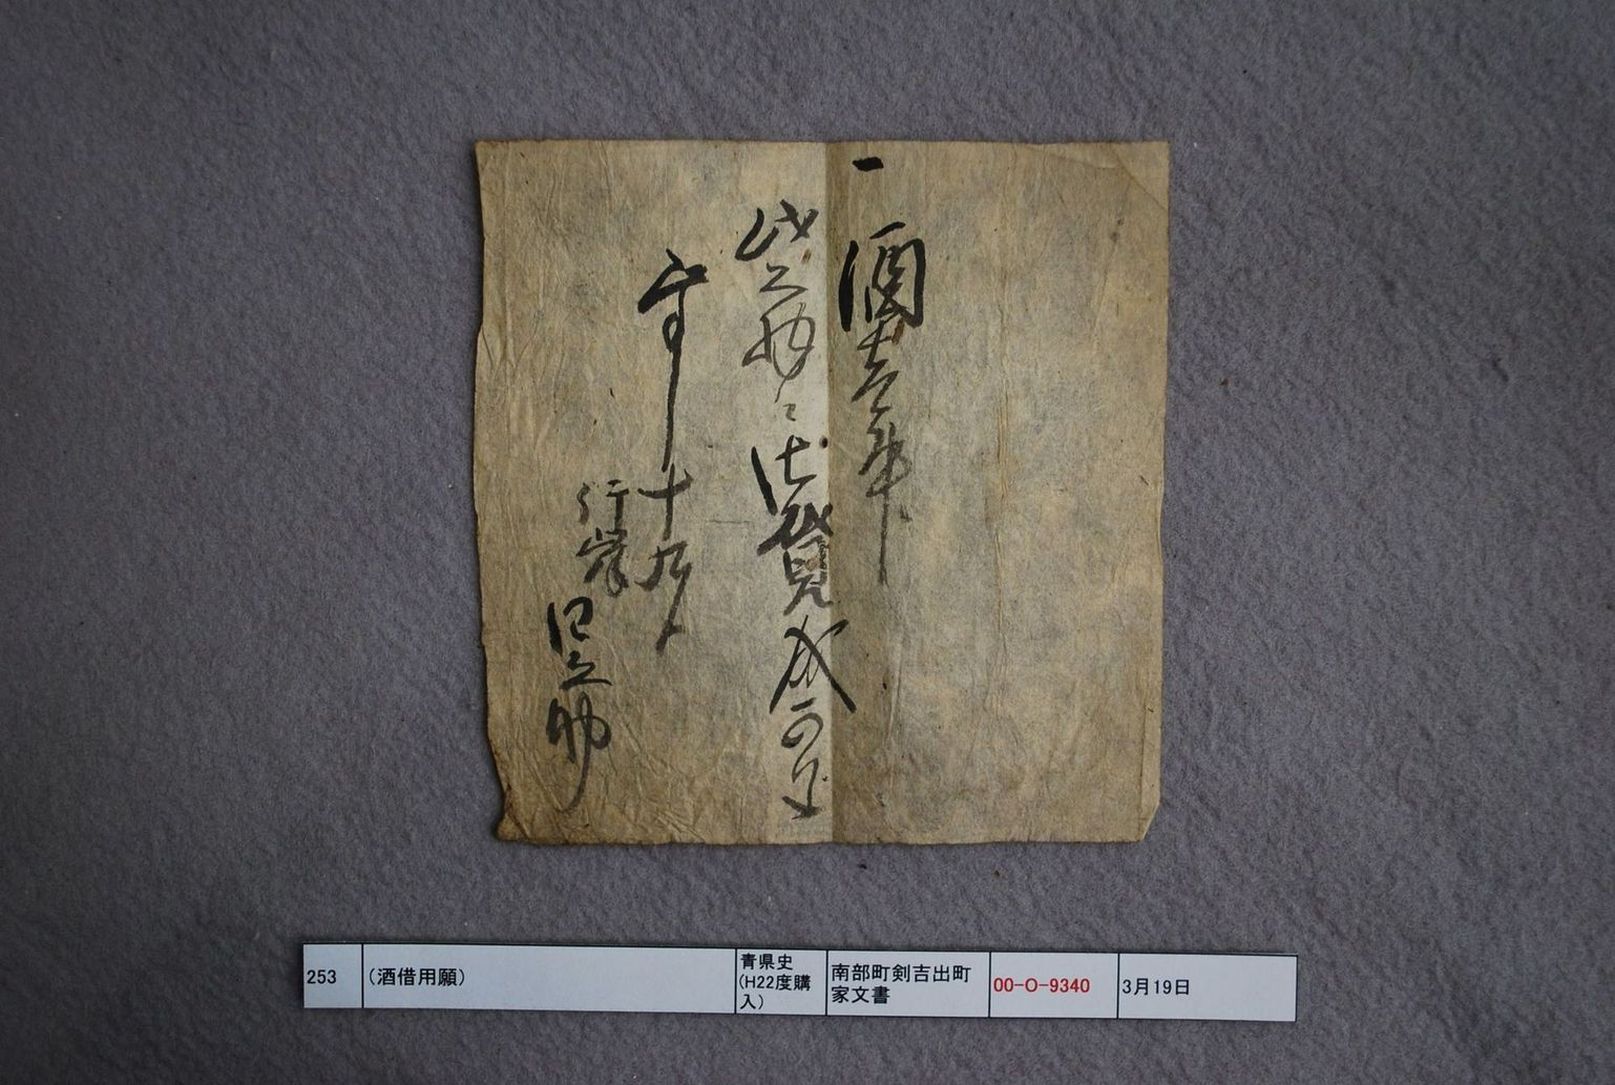 一
酒壱升
此之助ニ御貸成可
十九日
之助
253
（酒借用願）
青県史
（H22度購
入）
南部町剣吉出町
家文書
00-O-9340
3月19日